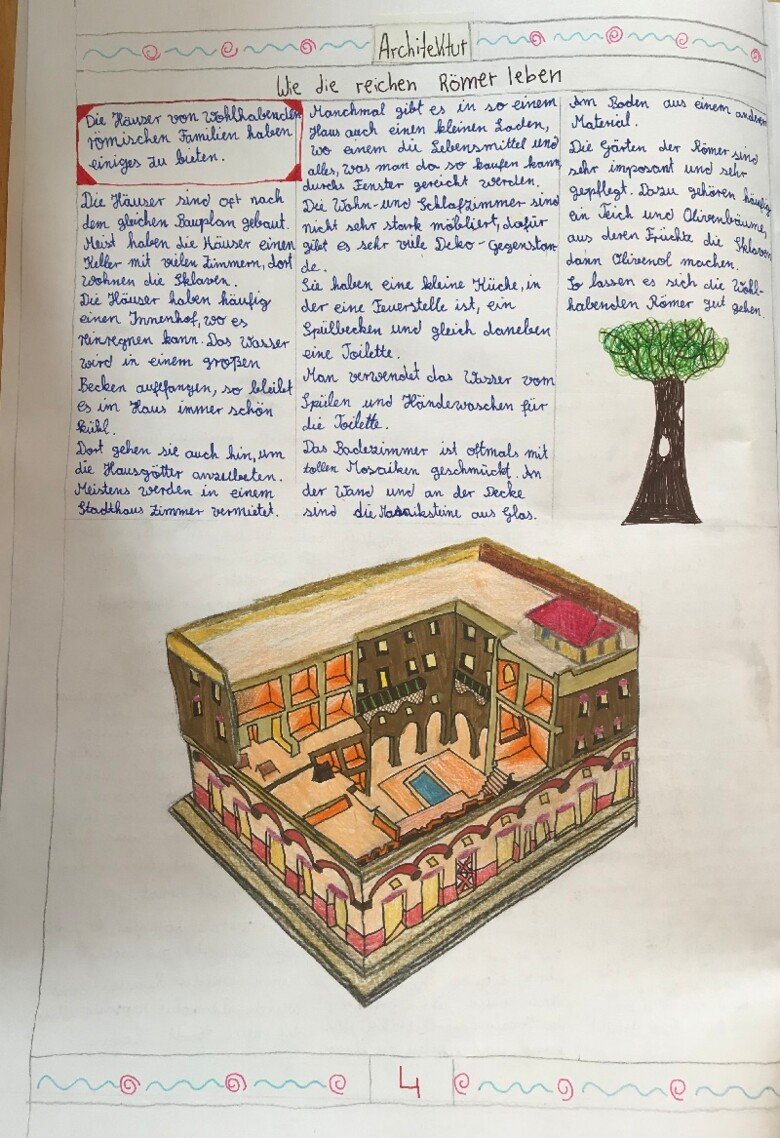 Architektur
Wie die reichen Römer leben
Die Häuser von Wohlhabenden
römischen Familien haben
einiges zu bieten.
Die Häuser sind oft nach
dem gleichen Bauplan gebaut.
Meist haben die Häuser einen
Keller mit vielen Zimmern, dort
wohnen die Sklaven.
Die Häuser haben häufig
einen Innenhof, wo es
reinregnen kann. Das Wasser
wird in einem großen
Becken auffangen, so bleibt
es im Haus immer schön
kühl.
Dort gehen sie auch hin, um
die Hausgötter anzubeten.
Meistens werden in einem
Stadthaus Zimmer vermietet.
Manchmal gibt es in so einem
Haus auch einen kleinen Laden,
wo einem die Lebensmittel und
alles, was man da so kaufen kann,
durchs Fenster gereicht werden.
Die Wohn- und Schlafzimmer sind
nicht sehr stark möbliert, dafür
gibt es sehr viele Deko-Gegenstän
de.
Sie haben eine kleine Küche, in
der eine Feuerstelle ist, ein
Spülbecken und gleich daneben
eine Toilette.
Man verwendet das Wasser vom
Spülen und Händewaschen für
die Toilette.
Das Badezimmer ist oftmals mit
tollen Mosaiken geschmückt. An
der Wand und an der Decke
sind die Mosaiksteine aus Glas.
Am Boden aus einem anderen
Material.
Die Gärten der Römer sind
sehr imposant und sehr
gepflegt. Dazu gehören häufig
ein Teich und Olivenbäume,
aus deren Früchte die Sklaven
dann Olivenöl machen.
So lassen es sich die Wohl-
habenden Römer gut gehen.
4